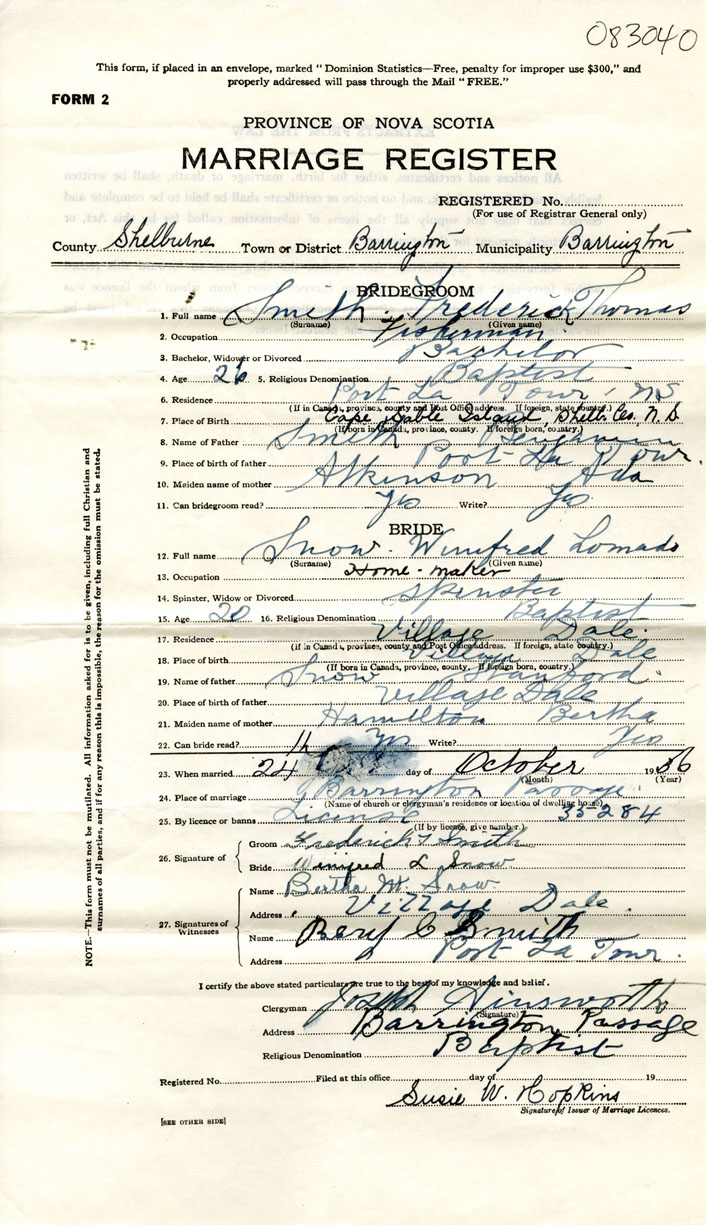 083040
This form, if placed in an envelope, marked "Dominion Statistics—Free, penalty for improper use $300," and
properly addressed will pass through the Mail "FREE."
FORM 2
PROVINCE OF NOVA SCOTIA
MARRIAGE REGISTER
REGISTERED No.
(For use of Registrar General only)
County Shelburne Town or District Barrington Municipality Barrington
BRIDEGROOM
1. Full name Smith. Frederick Thomas
(Surname) (Given name)
2. Occupation Fisherman.
3. Bachelor, Widower or Divorced Bachelor
4. Age 26 5. Religious Denomination Baptist
6. Residence Port La Tour, NS
(If in Canada, province, county and Post Office address. If foreign, state country.)
7. Place of Birth Cape Sable Island, Shelb. Co. N.S.
(If born in Canada, province, county. If foreign born, country.)
8. Name of Father Smith Benjamin
9. Place of birth of father Port La Tour.
10. Maiden name of mother Atkinson Ada
11. Can bridegroom read? Yes Write? Yes
BRIDE
12. Full name Snow. Winifred Lomado
(Surname) (Given name)
13. Occupation Home-maker
14. Spinster, Widow or Divorced Spinster
15. Age 20 16. Religious Denomination Baptist
17. Residence Village Dale.
(If in Canada, province, county and Post Office address. If foreign, state country.)
18. Place of birth Village Dale
(If born in Canada, province, county. If foreign born, country.)
19. Name of father Snow Stanford.
20. Place of birth of father Village Dale
21. Maiden name of mother Hamilton Bertha
22. Can bride read? Yes Write? Yes
23. When married 24th day of October 1936
(Month) (Year)
24. Place of marriage Barrington Passage
(Name of church or clergyman's residence or location of dwelling house)
25. By licence or banns License 35284
(If by licence, give number.)
26. Signature of Groom Frederick T Smith
Bride Winifred L Snow
27. Signatures of Witnesses
Name Bertha M. Snow.
Address Village Dale.
Name Beryl C Smith
Address Port La Tour.
I certify the above stated particulars are true to the best of my knowledge and belief.
Clergyman Joseph Ainsworth
(Signature)
Address Barrington Passage
Religious Denomination Baptist
Registered No. Filed at this office day of 19
Susie W. Hopkins
Signature of Issuer of Marriage Licences.
[SEE OTHER SIDE]
NOTE.—This form must not be mutilated. All information asked for is to be given, including full Christian and
surnames of all parties, and if for any reason this is impossible, the reason for the omission must be stated.